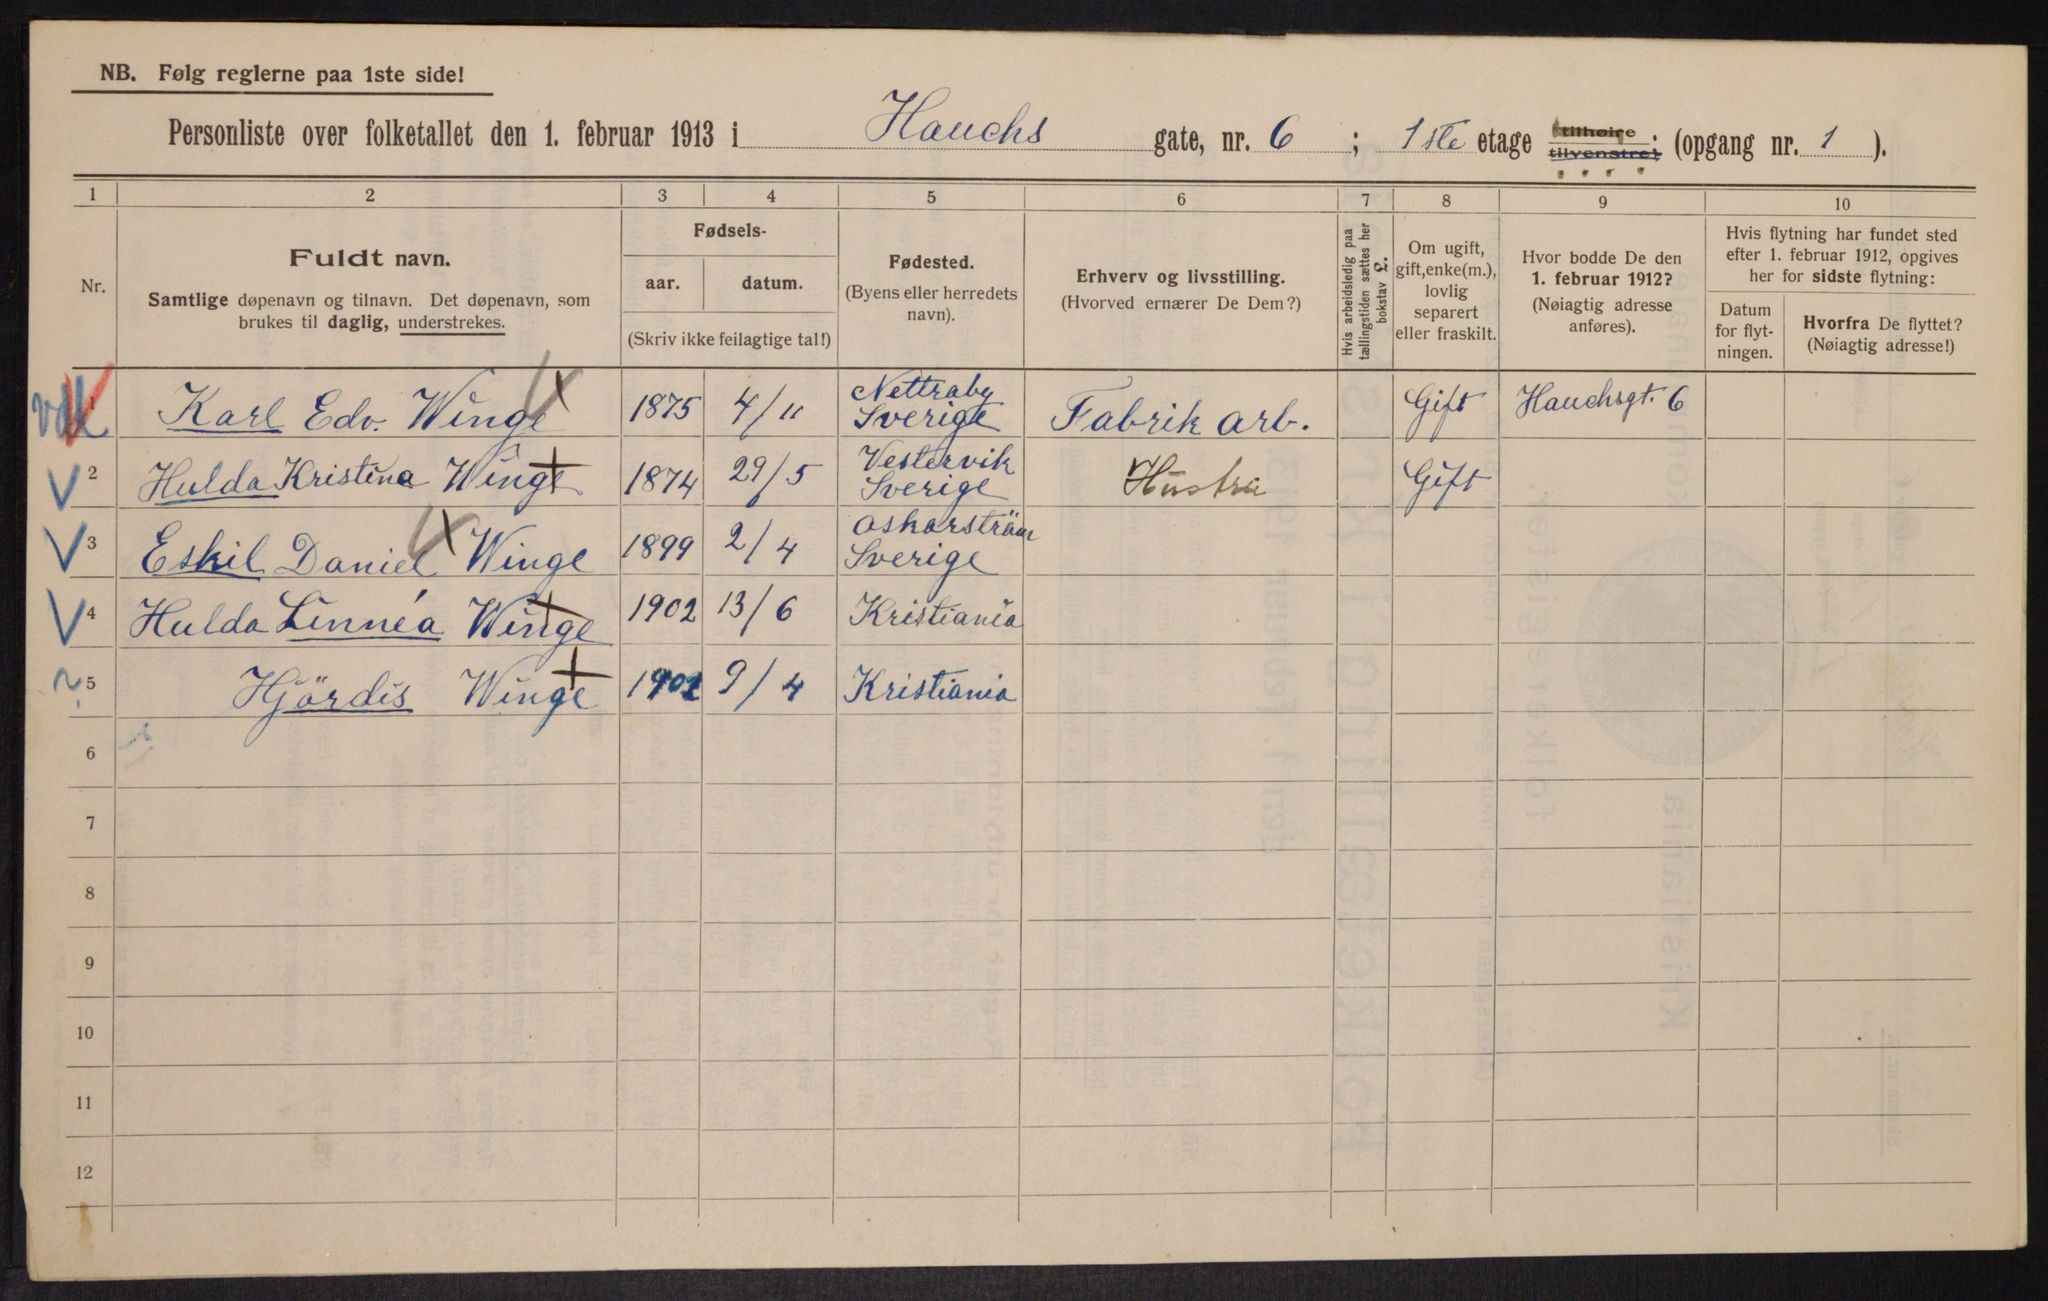 NB. Følg reglerne paa 1ste side!
Personliste over folketallet den 1. februar 1913 i Hauchs gate, nr. 6 ; 1ste etage tilhøire tilvenstre; (opgang nr. 1 ).
1 2 3 4 5 6 7 8 9 10
Nr.
Fuldt navn.
Samtlige døpenavn og tilnavn. Det døpenavn, som
brukes til daglig, understrekes.
Fødsels-
aar. datum.
(Skriv ikke feilagtige tal!)
Fødested.
(Byens eller herredets
navn).
Erhverv og livsstilling.
(Hvorved ernærer De Dem?)
Hvis arbeidsledig paa
tællingstiden sættes her
bokstav L.
Om ugift,
gift, enke(m.),
lovlig
separert
eller fraskilt.
Hvor bodde De den
1. februar 1912?
(Nøiagtig adresse
anføres).
Hvis flytning har fundet sted
efter 1. februar 1912, opgives
her for sidste flytning:
Datum
for flyt-
ningen.
Hvorfra De flyttet?
(Nøiagtig adresse!)
1 Karl Edv. Winge 1875 4/11 Nettraby Sverige Fabrik arb. Gift Hauchsgt. 6
2 Hulda Kristina Winge 1874 29/5 Vestervik Sverige Hustru Gift
3 Eskil Daniel Winge 1899 2/4 Oskarsträm Sverige
4 Hulda Linnéa Winge 1902 13/6 Kristiania
5 Hjördis Winge 9/4 Kristiania
6
7
8
9
10
11
12